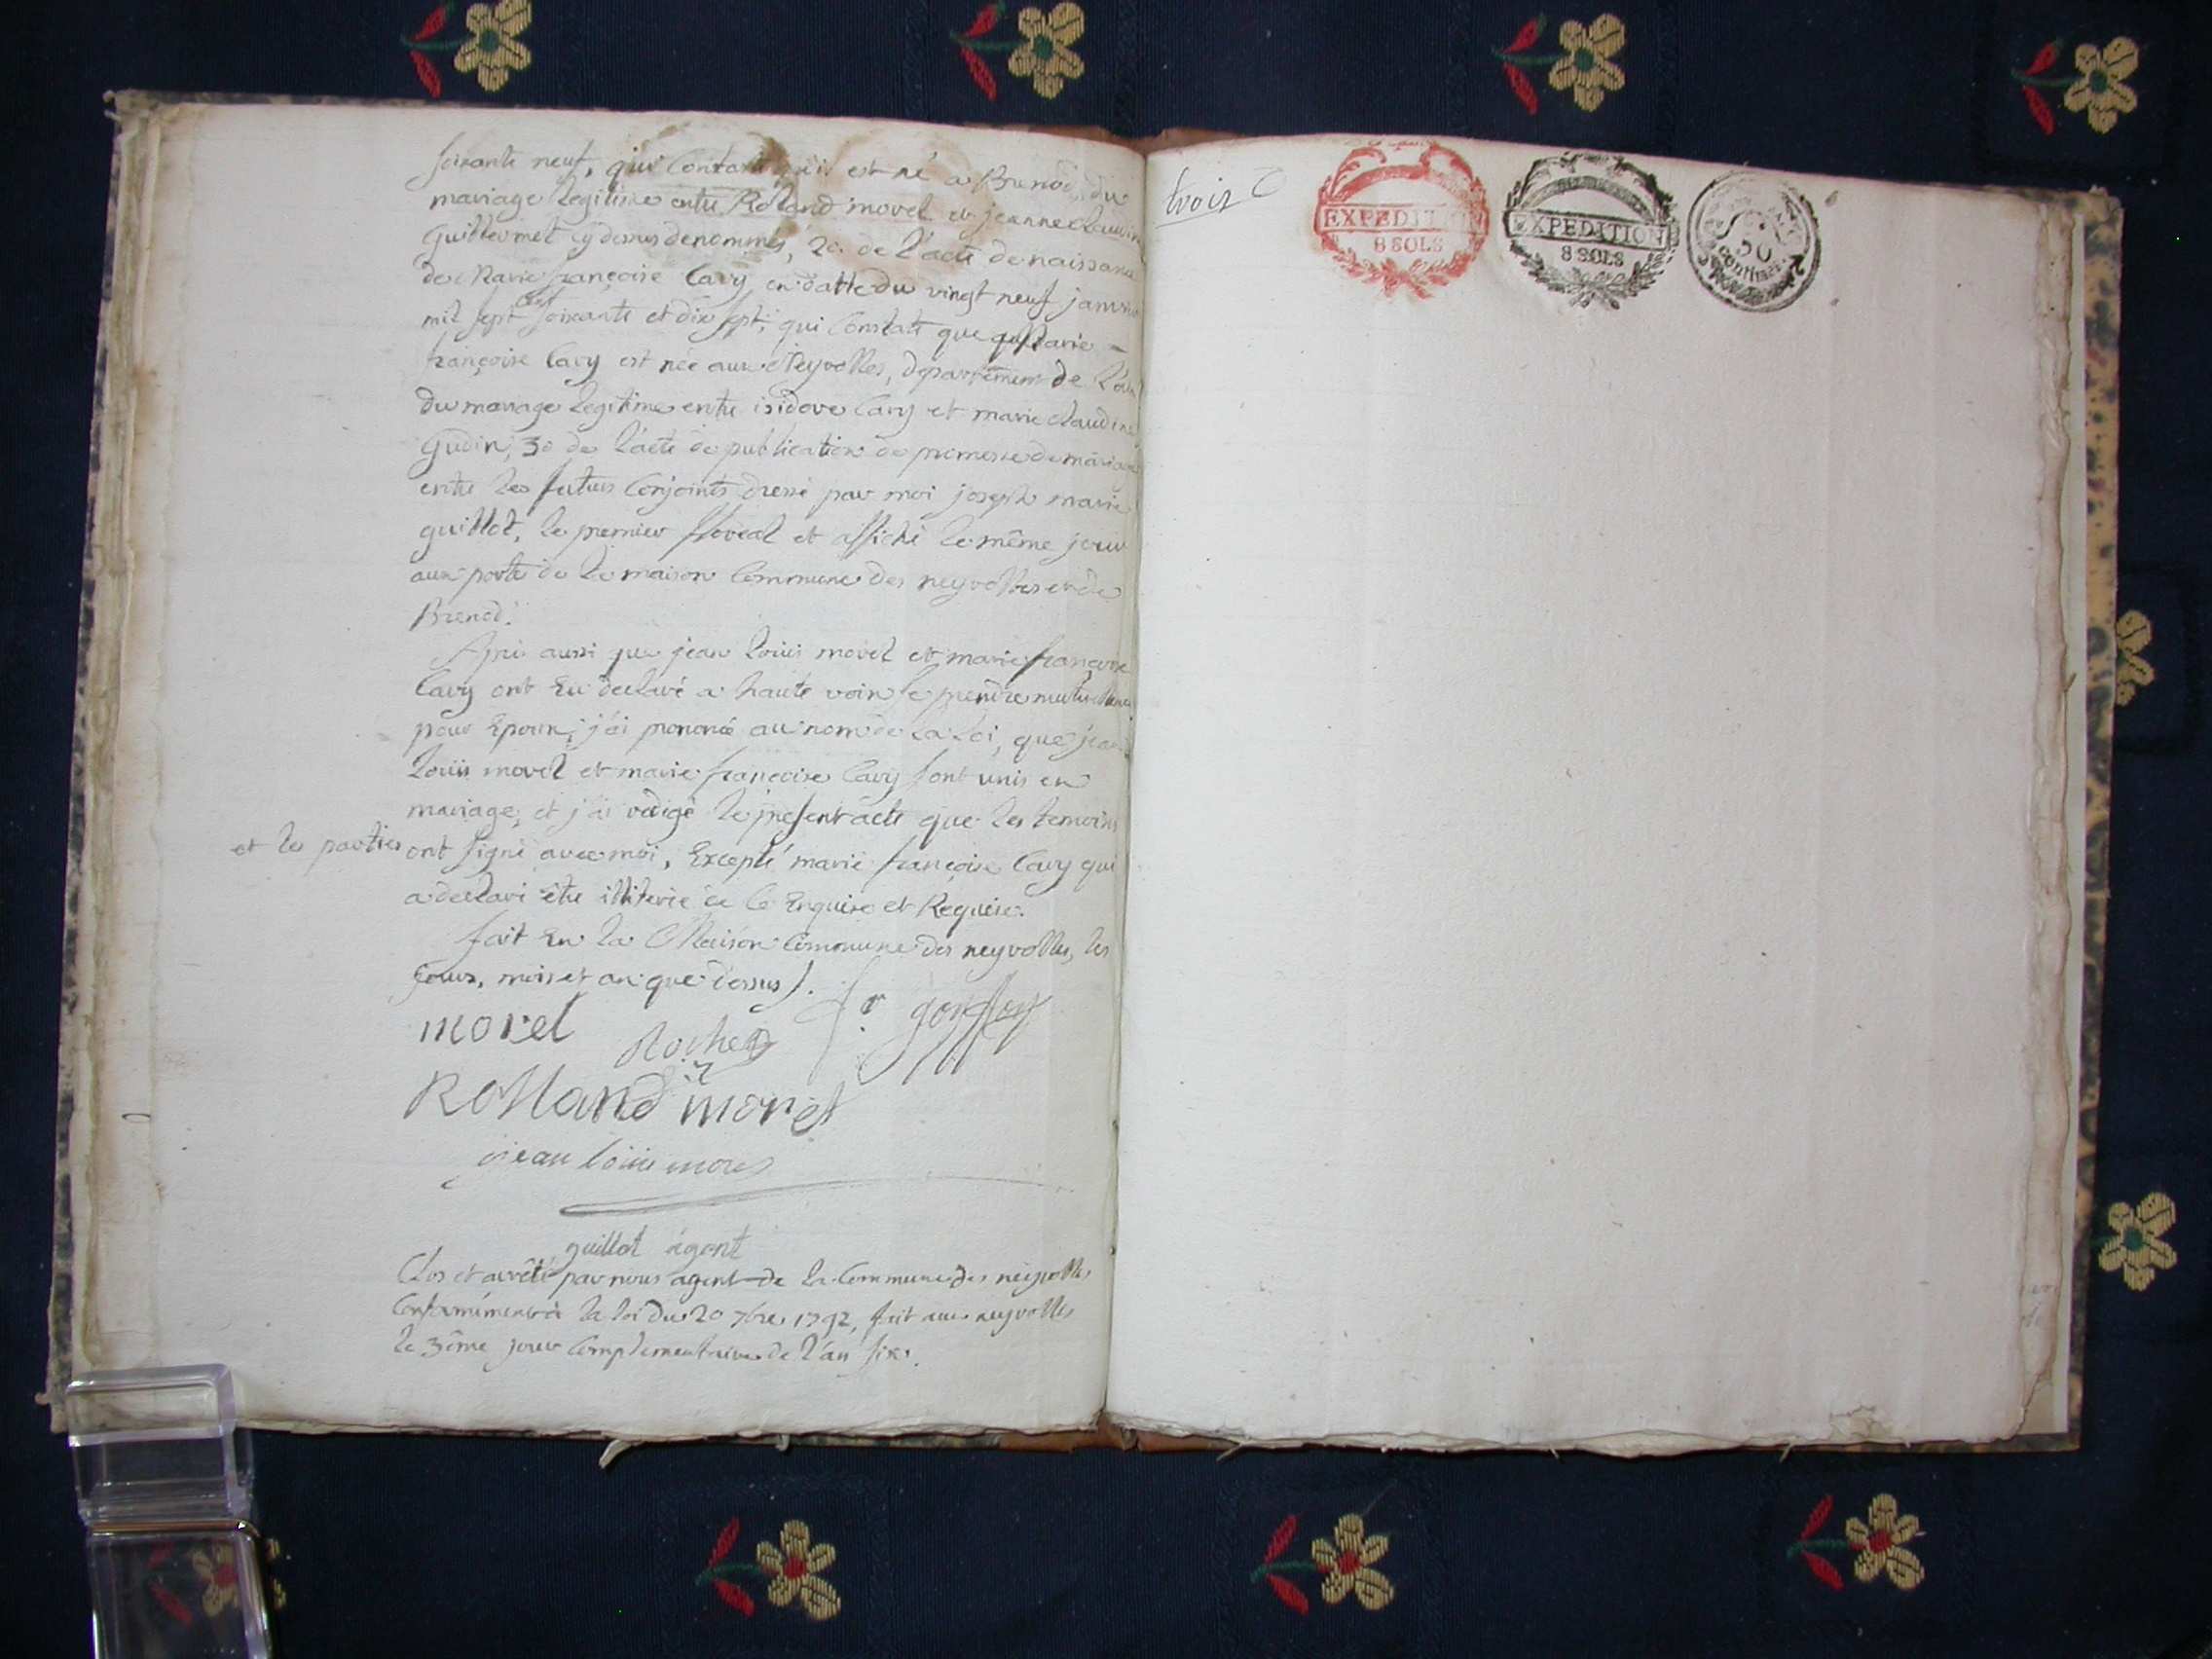 soixante neuf, qui Constate qu'il est né a Brenod, du
mariage legitime entre Roland morel et jeanne claudine
Guillermet cy dessus denommés, 2o. de l'acte de naissance
de Marie françoise Cavy en datte du vingt neuf janvier
mil sept cent soixante et dix sept, qui Constate que Marie
françoise Cavy est née aux Neyrolles, departement de l'ain
du mariage legitime entre isidore Cavy et marie claudine
Gudin; 3o de l'acte de publication de promesse de mariage
entre les futurs Conjoints dressé par moi joseph marie
guillot, le premier floreal et affiché le même jour
aux porte de la maison Commune des neyrolles et de
Brenod.
Apres aussi que jean louis morel et marie françoise
Cavy ont Eu declaré a haute voix se prendre mutuellement
pour Epoux, j'ai prononcé au nom de La Loi, que jean
louis morel et marie françoise Cavy sont unis en
mariage, et j'ai redigé le present acte que les temoins
et les parties ont signé avec moi, Excepté marie françoise Cavy qui
a declaré être illiterée de ce Enquise et Requise.
fait En la Maison Commune des neyrolles, les
jours, mois et an que dessus.
morel
Rolland morel
jean louis morel
guillot agent
Clos et arrêté par nous agent de la Commune des neyrolles
Conformément à la loi du 20 7bre 1792, fait aux neyrolles
le 3ême jour Complementaire de l'an six.
trois
EXPEDITION
8 SOLS
EXPEDITION
8 SOLS
50
centimes